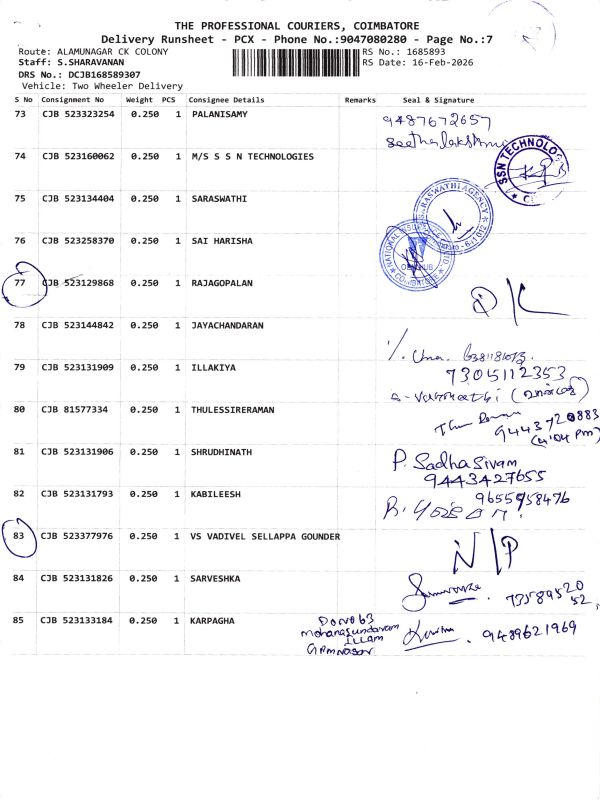 THE PROFESSIONAL COURIERS, COIMBATORE
Delivery Runsheet - PCX - Phone No.:9047080280 - Page No.:7
Route: ALAMUNAGAR CK COLONY RS No.: 1685893
Staff: S.SHARAVANAN RS Date: 16-Feb-2026
DRS No.: DCJB168589307
Vehicle: Two Wheeler Delivery
S No Consignment No Weight PCS Consignee Details Remarks Seal & Signature
73 CJB 523323254 0.250 1 PALANISAMY 9487672657
seethalakshmi
74 CJB 523160062 0.250 1 M/S S S N TECHNOLOGIES SSN TECHNOLOG
75 CJB 523134404 0.250 1 SARASWATHI
76 CJB 523258370 0.250 1 SAI HARISHA
77 CJB 523129868 0.250 1 RAJAGOPALAN D/L
78 CJB 523144842 0.250 1 JAYACHANDARAN
79 CJB 523131909 0.250 1 ILLAKIYA 7305112353
80 CJB 81577334 0.250 1 THULESSIRERAMAN 9443720883
(4:04 Pm)
81 CJB 523131906 0.250 1 SHRUDHINATH P. Sadhasivam
9443427655
82 CJB 523131793 0.250 1 KABILEESH 9655958476
83 CJB 523377976 0.250 1 VS VADIVEL SELLAPPA GOUNDER N/P
84 CJB 523131826 0.250 1 SARVESHKA 73589520
52
85 CJB 523133184 0.250 1 KARPAGHA Dono 63
mohanasundaram
illam
9489621969